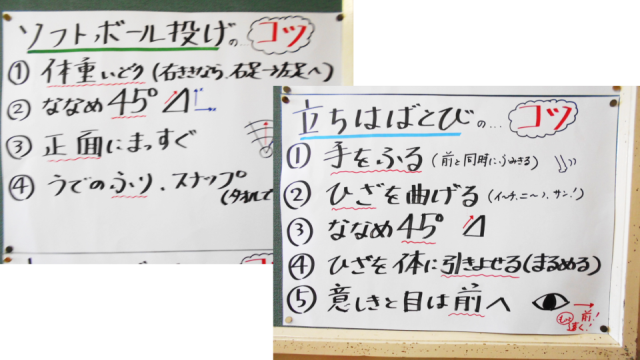 ソフトボール投げの…コツ
① 体重いどう(右ききなら、右足→左足へ)
② ななめ45°
③ 正面にまっすぐ
④ うでのふり、スナップ
(タオルで
立ちはばとびの…コツ
① 手をふる(前と同時にふみきる)
② ひざを曲げる(イ〜チ、ニ〜、サン!)
③ ななめ45°
④ ひざを体に引きよせる(まるめる)
⑤ 意しきと目は前へ
もっと前!